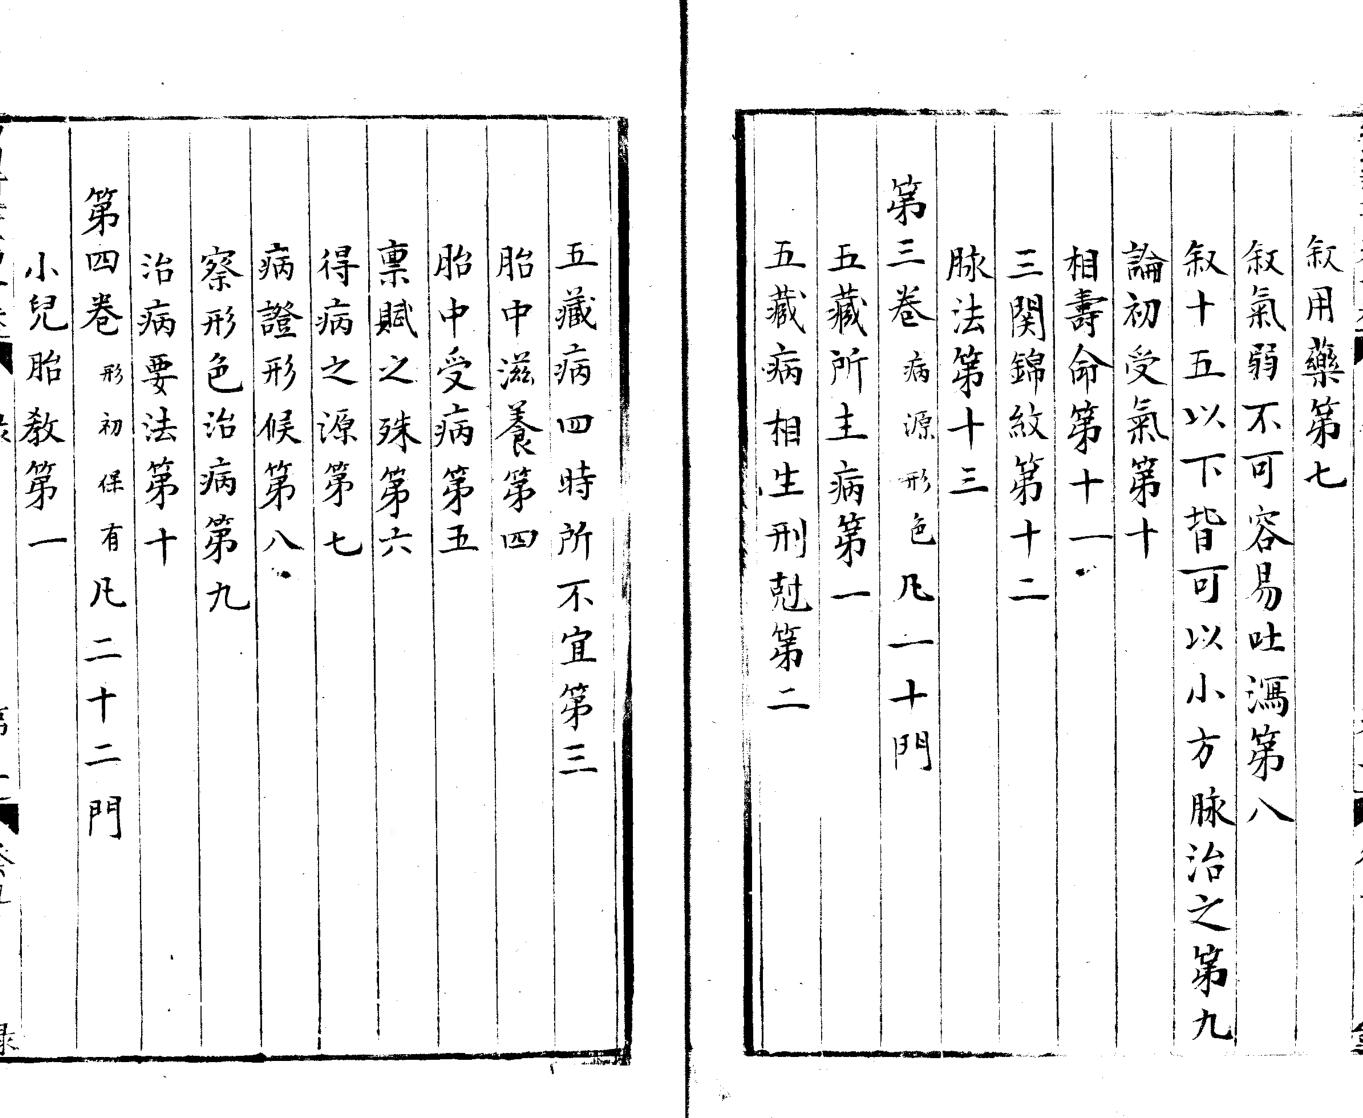 叙用藥第七
叙氣弱不可容易吐瀉第八
叙十五以下皆可以小方脉治之第九
論初受氣第十
相壽命第十一
三関錦紋第十二
脉法第十三
第三卷 病源形色 凡一十門
五藏所主病第一
五藏病相生刑尅第二
五藏病四時所不宜第三
胎中滋養第四
胎中受病第五
禀賦之殊第六
得病之源第七
病證形候第八
察形色治病第九
治病要法第十
第四卷 形初保有 凡二十二門
小兒胎教第一